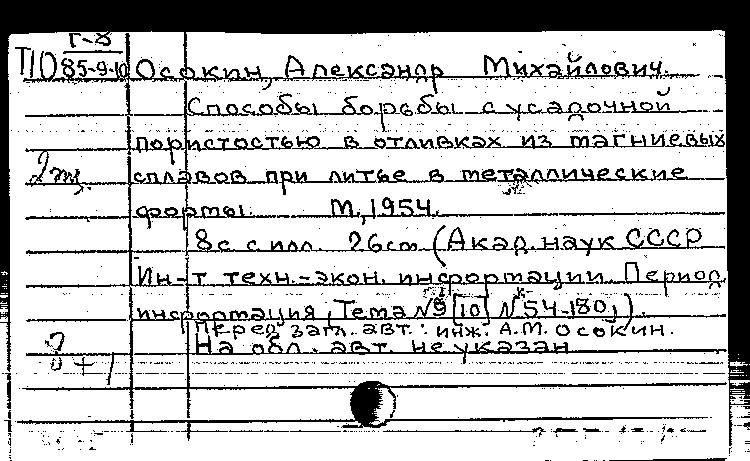 Г-8
П10 85-9-10 Осокин, Александр Михайлович.
Способы борьбы с усадочной
пористостью в отливках из магниевых
2 экз. сплавов при литье в металлические
формы. М., 1954.
8 с. с илл. 26 см. (Акад. наук СССР
Ин-т техн.-экон. информации. Период.
информация, Тема № 9 [10] № 54-180,)
Перед загл. авт.: инж. А.М. Осокин.
На обл. авт. не указан